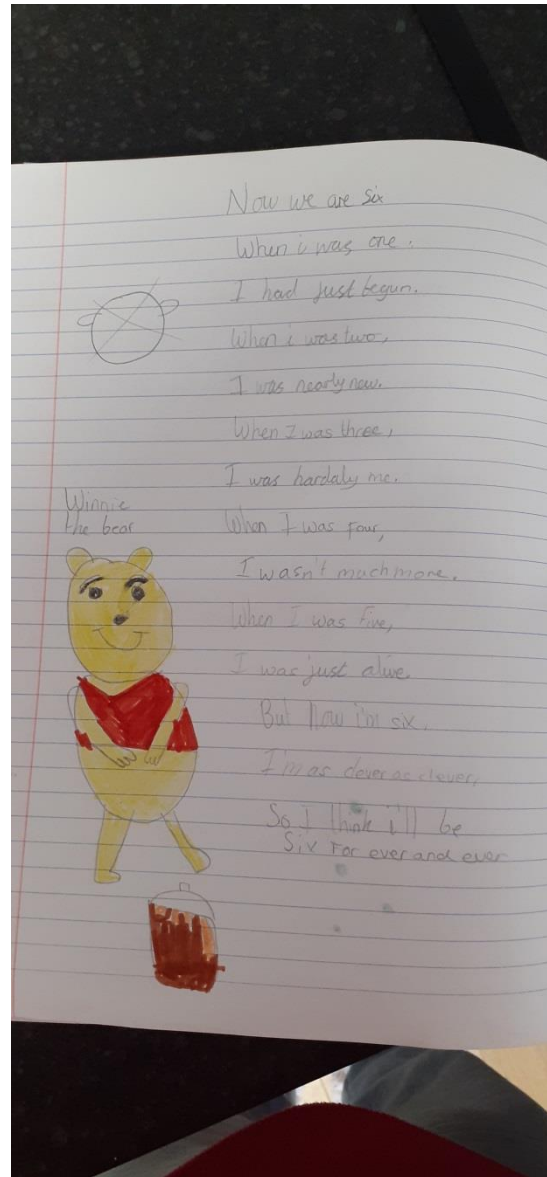 Now we are six
When i was one.
I had just begun.
When i was two,
I was nearly new.
When I was three,
I was hardaly me.
Winnie
the bear
When I was four,
I wasn't much more.
When I was five,
I was just alive.
But Now i'm six.
I'm as clever as clever,
So I think i'll be
Six For ever and ever